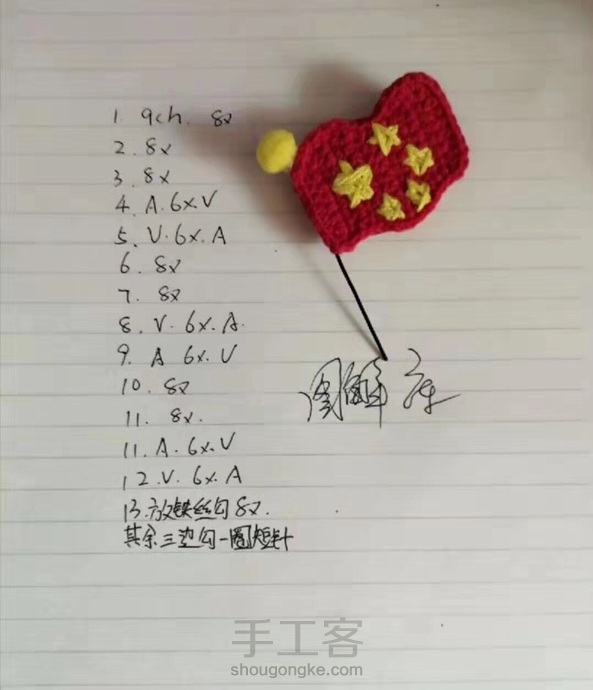 1. 9ch. 8x
2. 8x
3. 8x
4. A. 6x. V
5. V. 6x. A
6. 8x
7. 8x
8. V. 6x. A.
9. A 6x. V
10. 8x
11. 8x.
11. A. 6x. V
12. V. 6x. A
13. 放铁丝勾8x.
其余三边勾一圈短针
图解
手工客
shougongke.com